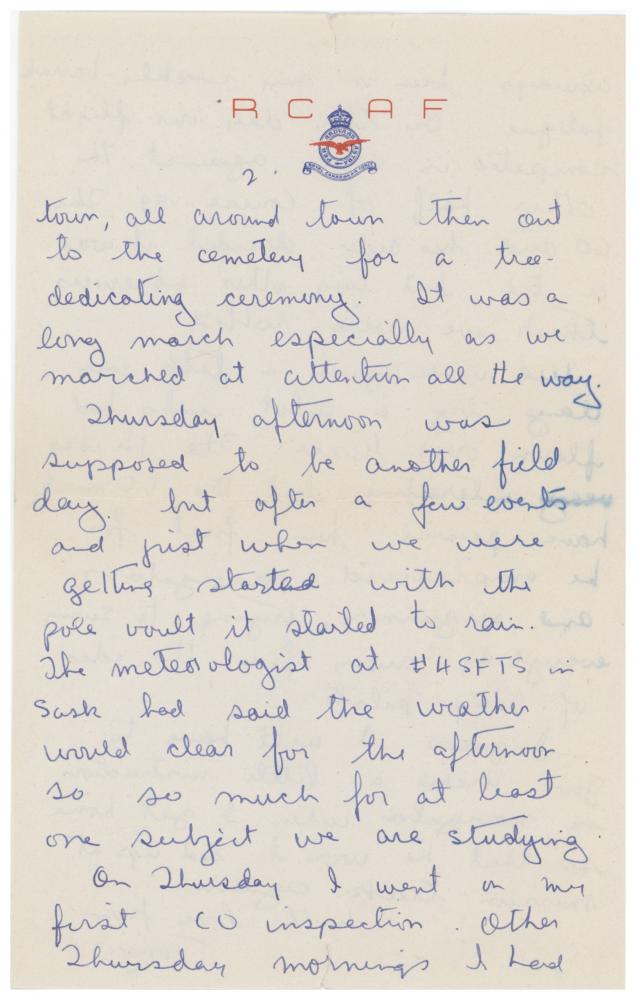 RCAF
2.
town, all around town then out
to the cemetery for a tree-
dedicating ceremony. It was a
long march especially as we
marched at attention all the way.
Thursday afternoon was
supposed to be another field
day. but after a few events
and just when we were
getting started with the
pole vault it started to rain.
The meteorologist at #4SFTS in
Sask had said the weather
would clear for the afternoon
so so much for at least
one subject we are studying.
On Thursday I went on my
first CO inspection. Other
Thursday mornings I had